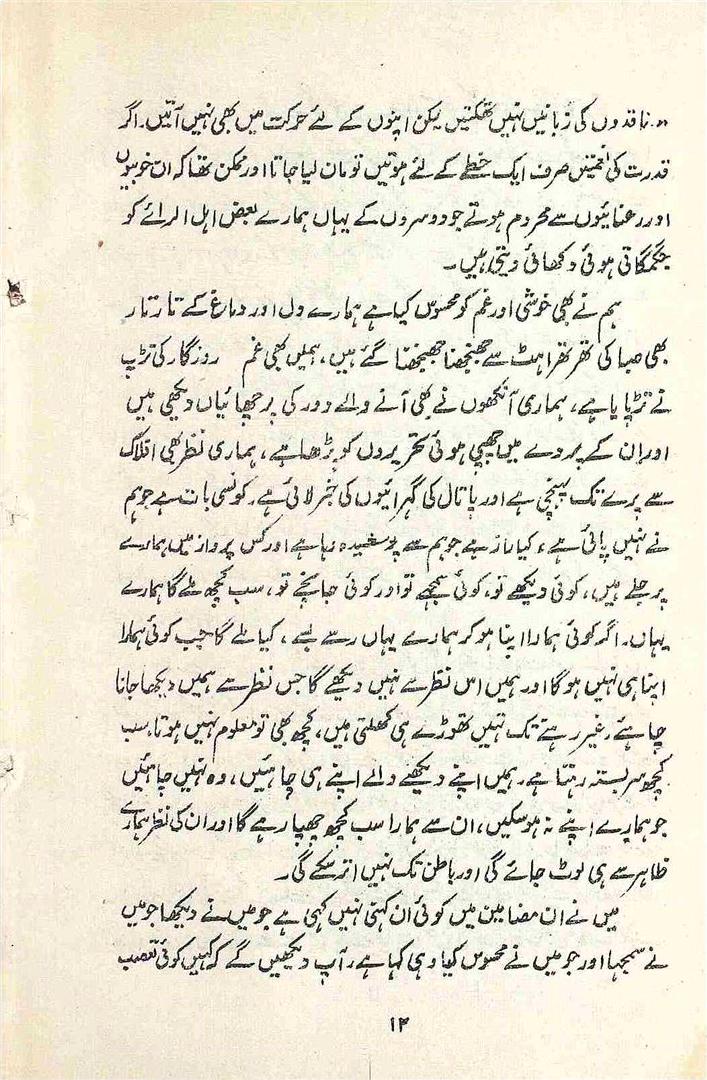 ،،۔ ناقدوں کی زبانیں نہیں تھکتیں لیکن اپنوں کے لئے حرکت میں بھی نہیں آتیں۔ اگر
قدرت کی نعمتیں صرف ایک خطے کے لئے ہوتیں تو مان لیا جاتا اور ممکن تھا کہ ان خوبیوں
اور رعنائیوں سے محروم ہوتے جو دوسروں کے یہاں ہمارے بعض اہل الرائے کو
جگمگاتی ہوئی دکھائی دیتی ہیں۔
ہم نے بھی خوشی اور غم کو محسوس کیا ہے ہمارے دل اور دماغ کے تار تار
بھی صبا کی تھرتھراہٹ سے جھنجھنا جھنجھنا گئے ہیں، ہمیں بھی غم روزگار کی تڑپ
نے تڑپایا ہے، ہماری آنکھوں نے بھی آنے والے دور کی پرچھائیاں دیکھی ہیں
اور ان کے پردے میں چھپی ہوئی تحریروں کو پڑھا ہے، ہماری نظر بھی افلاک
سے پرے تک پہنچی ہے اور پاتال کی گہرائیوں کی خبر لائی ہے۔ کونسی بات ہے جو ہم
نے نہیں پائی ہے، کیا راز ہے جو ہم سے پوشیدہ رہا ہے اور کس پرواز میں ہمارے
پر جلے ہیں، کوئی دیکھے تو، کوئی سمجھے تو اور کوئی جانچے تو، سب کچھ ملے گا ہمارے
یہاں۔ اگر کوئی ہمارا اپنا ہو کر ہمارے یہاں رہے بسے، کیا ملے گا جب کوئی ہمارا
اپنا ہی نہیں ہوگا اور ہمیں اس نظر سے نہیں دیکھے گا جس نظر سے ہمیں دیکھا جانا
چاہئے، غیر رہے تک تہیں تھوڑے ہی کھلتی ہیں، کچھ بھی تو معلوم نہیں ہوتا، سب
کچھ سربستہ رہتا ہے۔ ہمیں اپنے دیکھنے والے اپنے ہی چاہئیں، وہ نہیں چاہئیں
جو ہمارے اپنے نہ ہوسکیں، ان سے ہمارا سب کچھ چھپا رہے گا اور ان کی نظر ہمارے
ظاہر سے ہی لوٹ جائے گی اور باطن تک نہیں اتر سکے گی۔
میں نے ان مضامین میں کوئی ان کہتی نہیں کہی ہے جو میں نے دیکھا جو میں
نے سمجھا اور جو میں نے محسوس کیا وہی کہا ہے، آپ دیکھیں گے کہ کہیں کوئی تعصب
۱۴